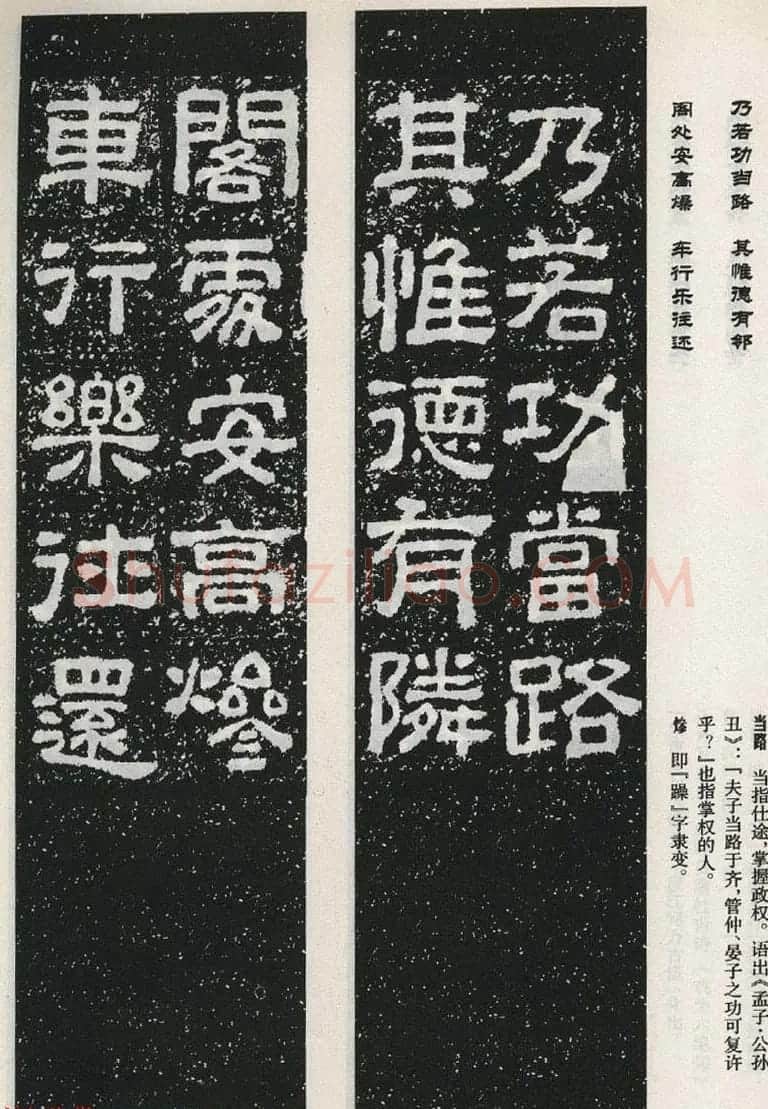 乃若功当路 其惟德有邻
阁处安高燥 车行乐往还
当路 当指仕途，掌握政权。语出《孟子·公孙
丑》：「夫子当路于齐，管仲、晏子之功可复许
乎？」也指掌权的人。
即「躁」字隶变。
乃若功當路
其惟德有隣
閣處安高
車行樂往還
Shufaziliao.COM